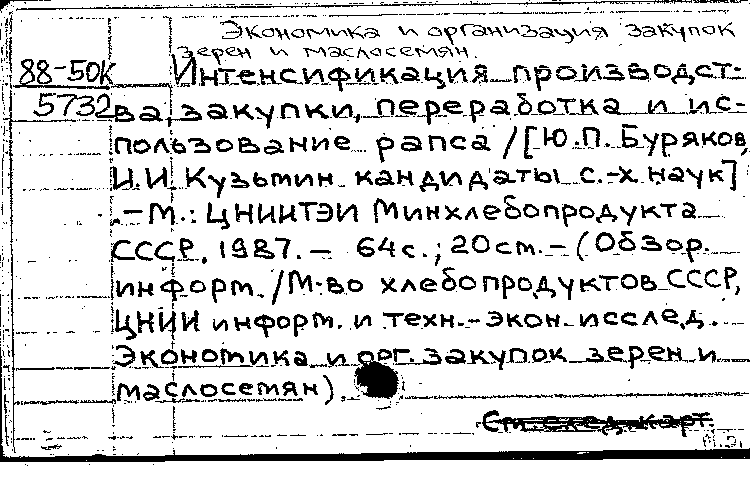 Экономика и организация закупок
зерен и маслосемян.
88-50К Интенсификация производст-
5732 ва, закупки, переработка и ис-
пользование рапса / [Ю.П. Буряков,
И.И. Кузьмин кандидаты с.-х. наук]
.-М.: ЦНИИТЭИ Минхлебопродукта
СССР, 1987. - 64с.; 20см. - (Обзор.
информ. / М-во хлебопродуктов СССР,
ЦНИИ информ. и техн.-экон. исслед.
Экономика и орг. закупок зерен и
маслосемян).
См. след. карт.